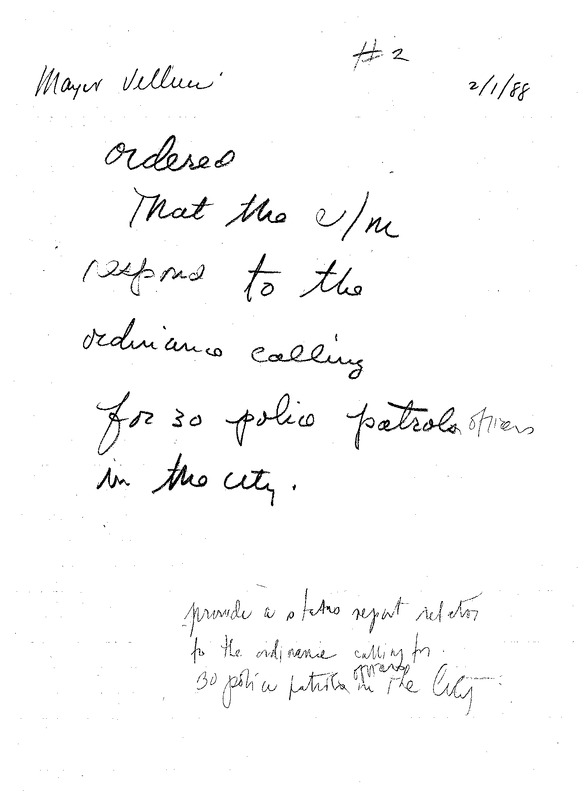 #2
Mayor Vellucci 2/1/88
ordered
That the c/m
respond to the
ordinance calling
for 30 police patrols officers
in the city.
provide a status report relator
to the ordinance calling for
officers
30 police patrols in the City